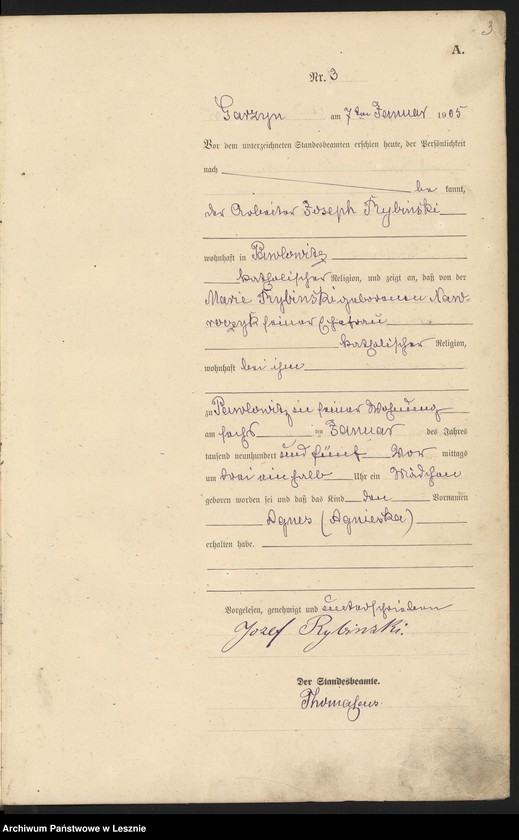 3
A.
Nr. 3
Garzyn am 7ten Januar 1905
Vor dem unterzeichneten Standesbeamten erschien heute, der Persönlichkeit
nach
be kannt,
der Arbeiter Joseph Rybinski
wohnhaft in Pawlowitz
katholischer Religion, und zeigt an, daß von der
Marie Rybinski geborenen Naw-
roczyk seiner Ehefrau
katholischer Religion,
wohnhaft bei ihm
zu Pawlowitz in seiner Wohnung
am sechs ten Januar des Jahres
tausend neunhundert und fünf Vor mittags
um drei ein halb Uhr ein Mädchen
geboren worden sei und daß das Kind den Vornamen
Agnes (Agnieska)
erhalten habe.
Vorgelesen, genehmigt und unterschrieben
Jozef Rybinski.
Der Standesbeamte.
Archiwum Państwowe w Lesznie